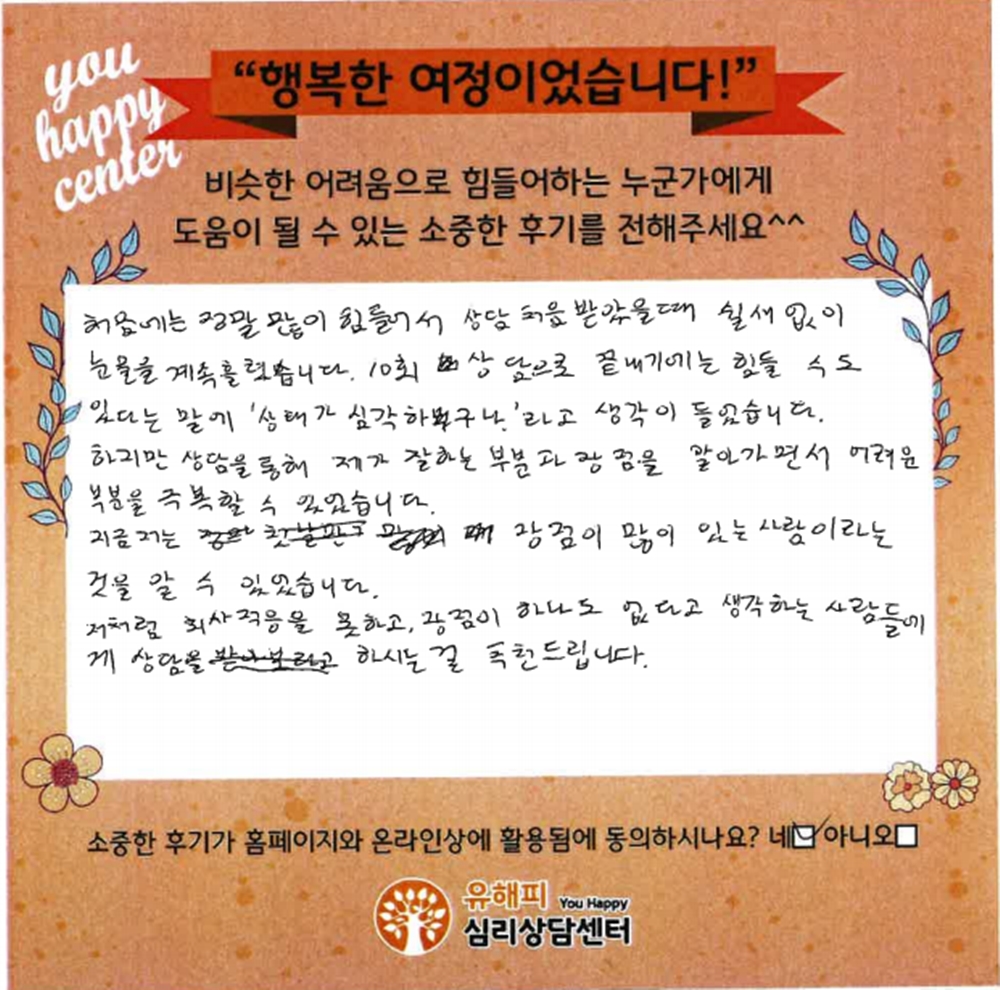 you
happy
center
“행복한 여정이었습니다!”
비슷한 어려움으로 힘들어하는 누군가에게
도움이 될 수 있는 소중한 후기를 전해주세요^^
처음에는 정말 많이 힘들어서 상담 처음 받았을때 쉴새 없이
눈물을 계속흘렸습니다. 10회 상담으로 끝내기에는 힘들 수도
있다는 말에 '상태가 심각하구나.'라고 생각이 들었습니다.
하지만 상담을 통해 제가 잘하는 부분과 장점을 알아가면서 어려운
부분을 극복할 수 있었습니다.
지금저는 장점이 많이 있는 사람이라는
것을 알 수 있었습니다.
저처럼 회사적응을 못하고, 장점이 하나도 없다고 생각하는 사람들에
게 상담을 하시는 걸 추천드립니다.
소중한 후기가 홈페이지와 온라인상에 활용됨에 동의하시나요? 네 아니오
유해피 You Happy
심리상담센터